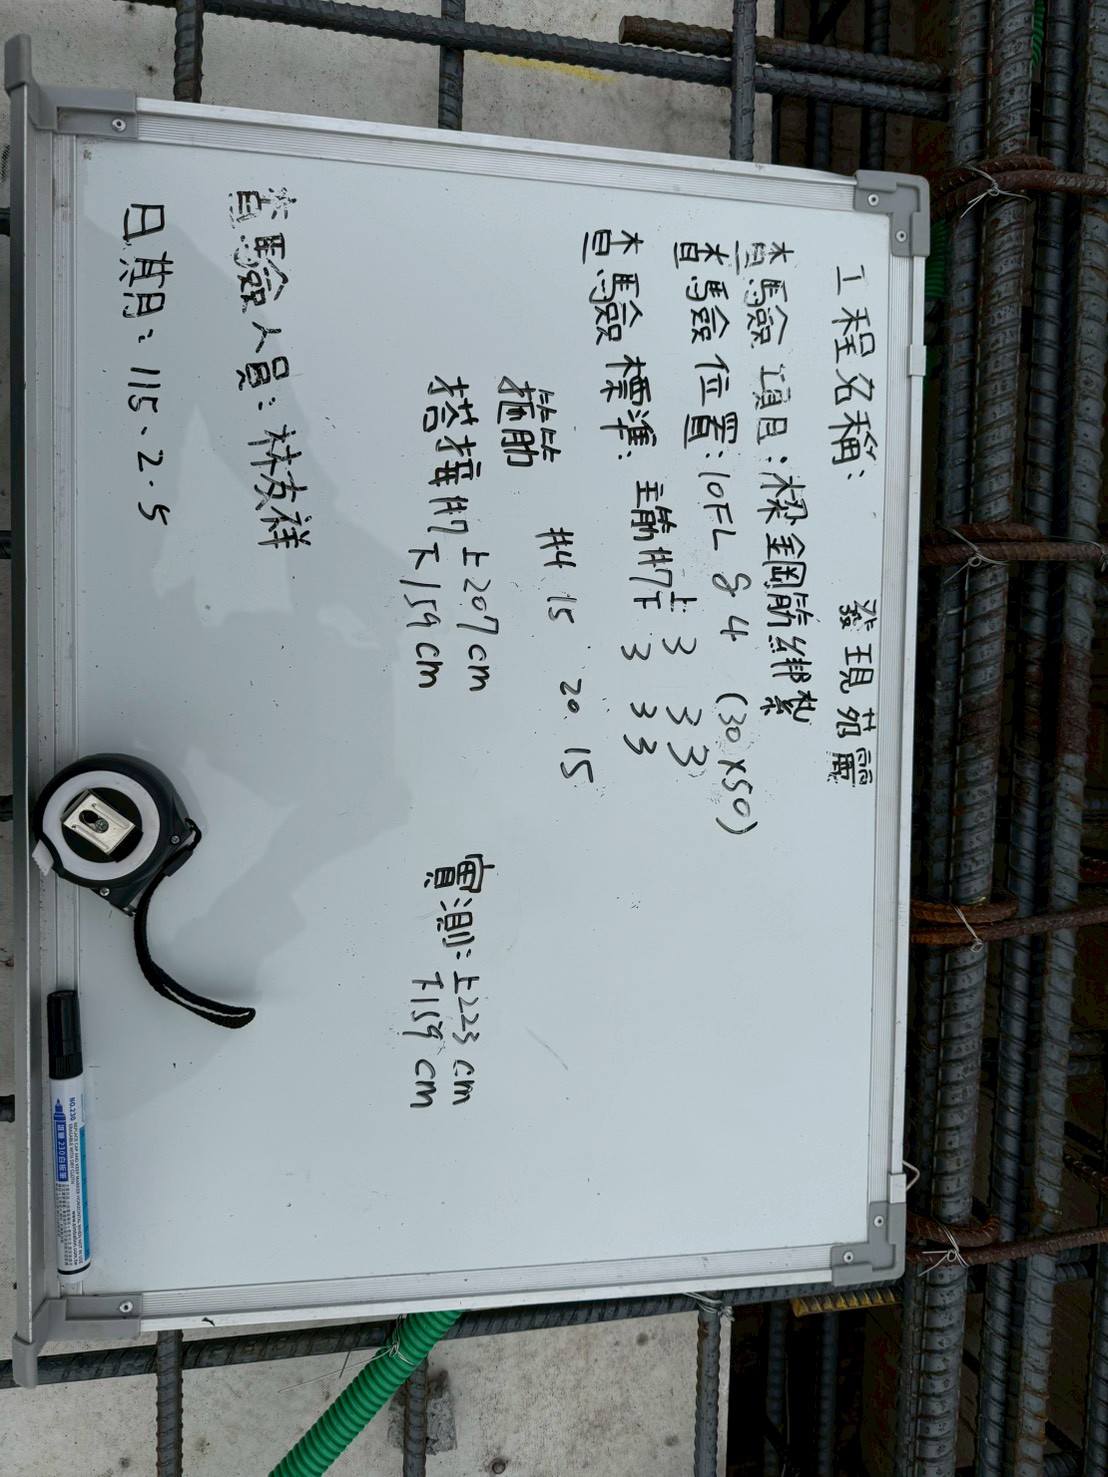 工程名稱: 發現苑露
查驗項目:樑鋼筋綁紮
查驗位置:10FL g4 (30x50)
查驗標準: 主筋#7 上 3 3 3
下 3 3 3
箍筋 #4 15 20 15
搭接#7 上207cm 實測:上223cm
下159cm 下159cm
查驗人員:林友祥
日期:115.2.5